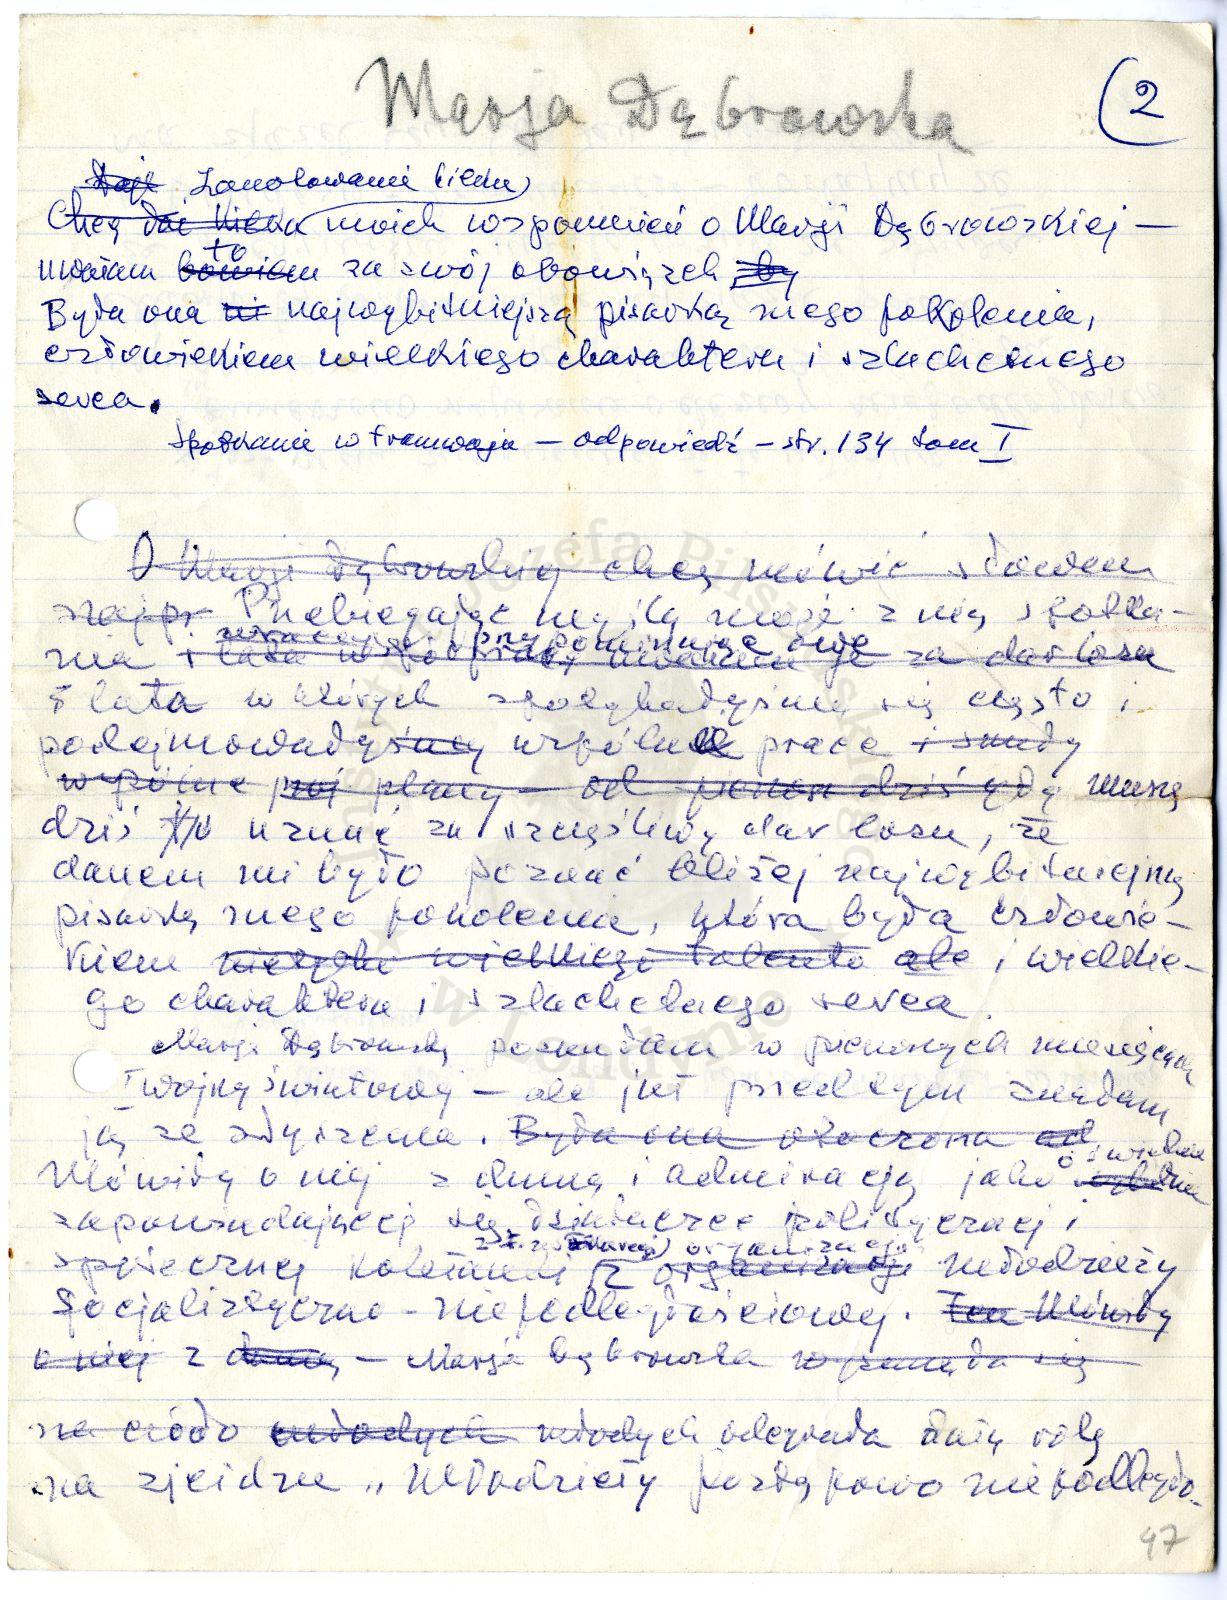 Marja Dąbrowska
2
Daję Zanotowanie kilku
Chcę dać kilka moich wspomnień o Marji Dąbrowskiej —
to
uważam bowiem za swój obowiązek by
Była ona ni najwybitniejszą pisarką mego pokolenia,
człowiekiem wielkiego charakteru i szlachetnego
serca.
Spotkanie w tramwaju — odpowiedź — str. 134 tom I
O Marji Dąbrowskiej chcę mówić słowem
najpr Przebiegając myślą moje z nią spotka-
przypominając owe
nia i lata współpracy uważam je za dar losu
i lata w których spotykałyśmy się często i
podejmowałyśmy wspólne prace i snuły
wspólne plany — dziś gdy muszę
dziś uznać za szczęśliwy dar losu, że
danem mi było poznać bliżej najwybitniejszą
pisarkę mego pokolenia, która była człowie-
kiem nietylko wielkiego talentu ale i wielkie-
go charakteru i szlachetnego serca.
Marję Dąbrowską poznałam w pierwszych miesiącach
I wojny światowej — ale już przedtem znałam
ją ze słyszenia. Była ona otoczona
Mówiły o niej z dumą i admiracją jako o świetnie
zapowiadającej się działaczce politycznej i
organizacji
społecznej koleżanki z organizacji młodzieży
socjalistyczno-niepodległościowej. Mówiły
o niej z dumą — Marja Dąbrowska wysunęła się
na czoło młodych młodych odegrała dużą rolę
na zjeździe „Młodzieży postępowo niepodległo-
47
Instytut Józefa Piłsudskiego
w Londynie